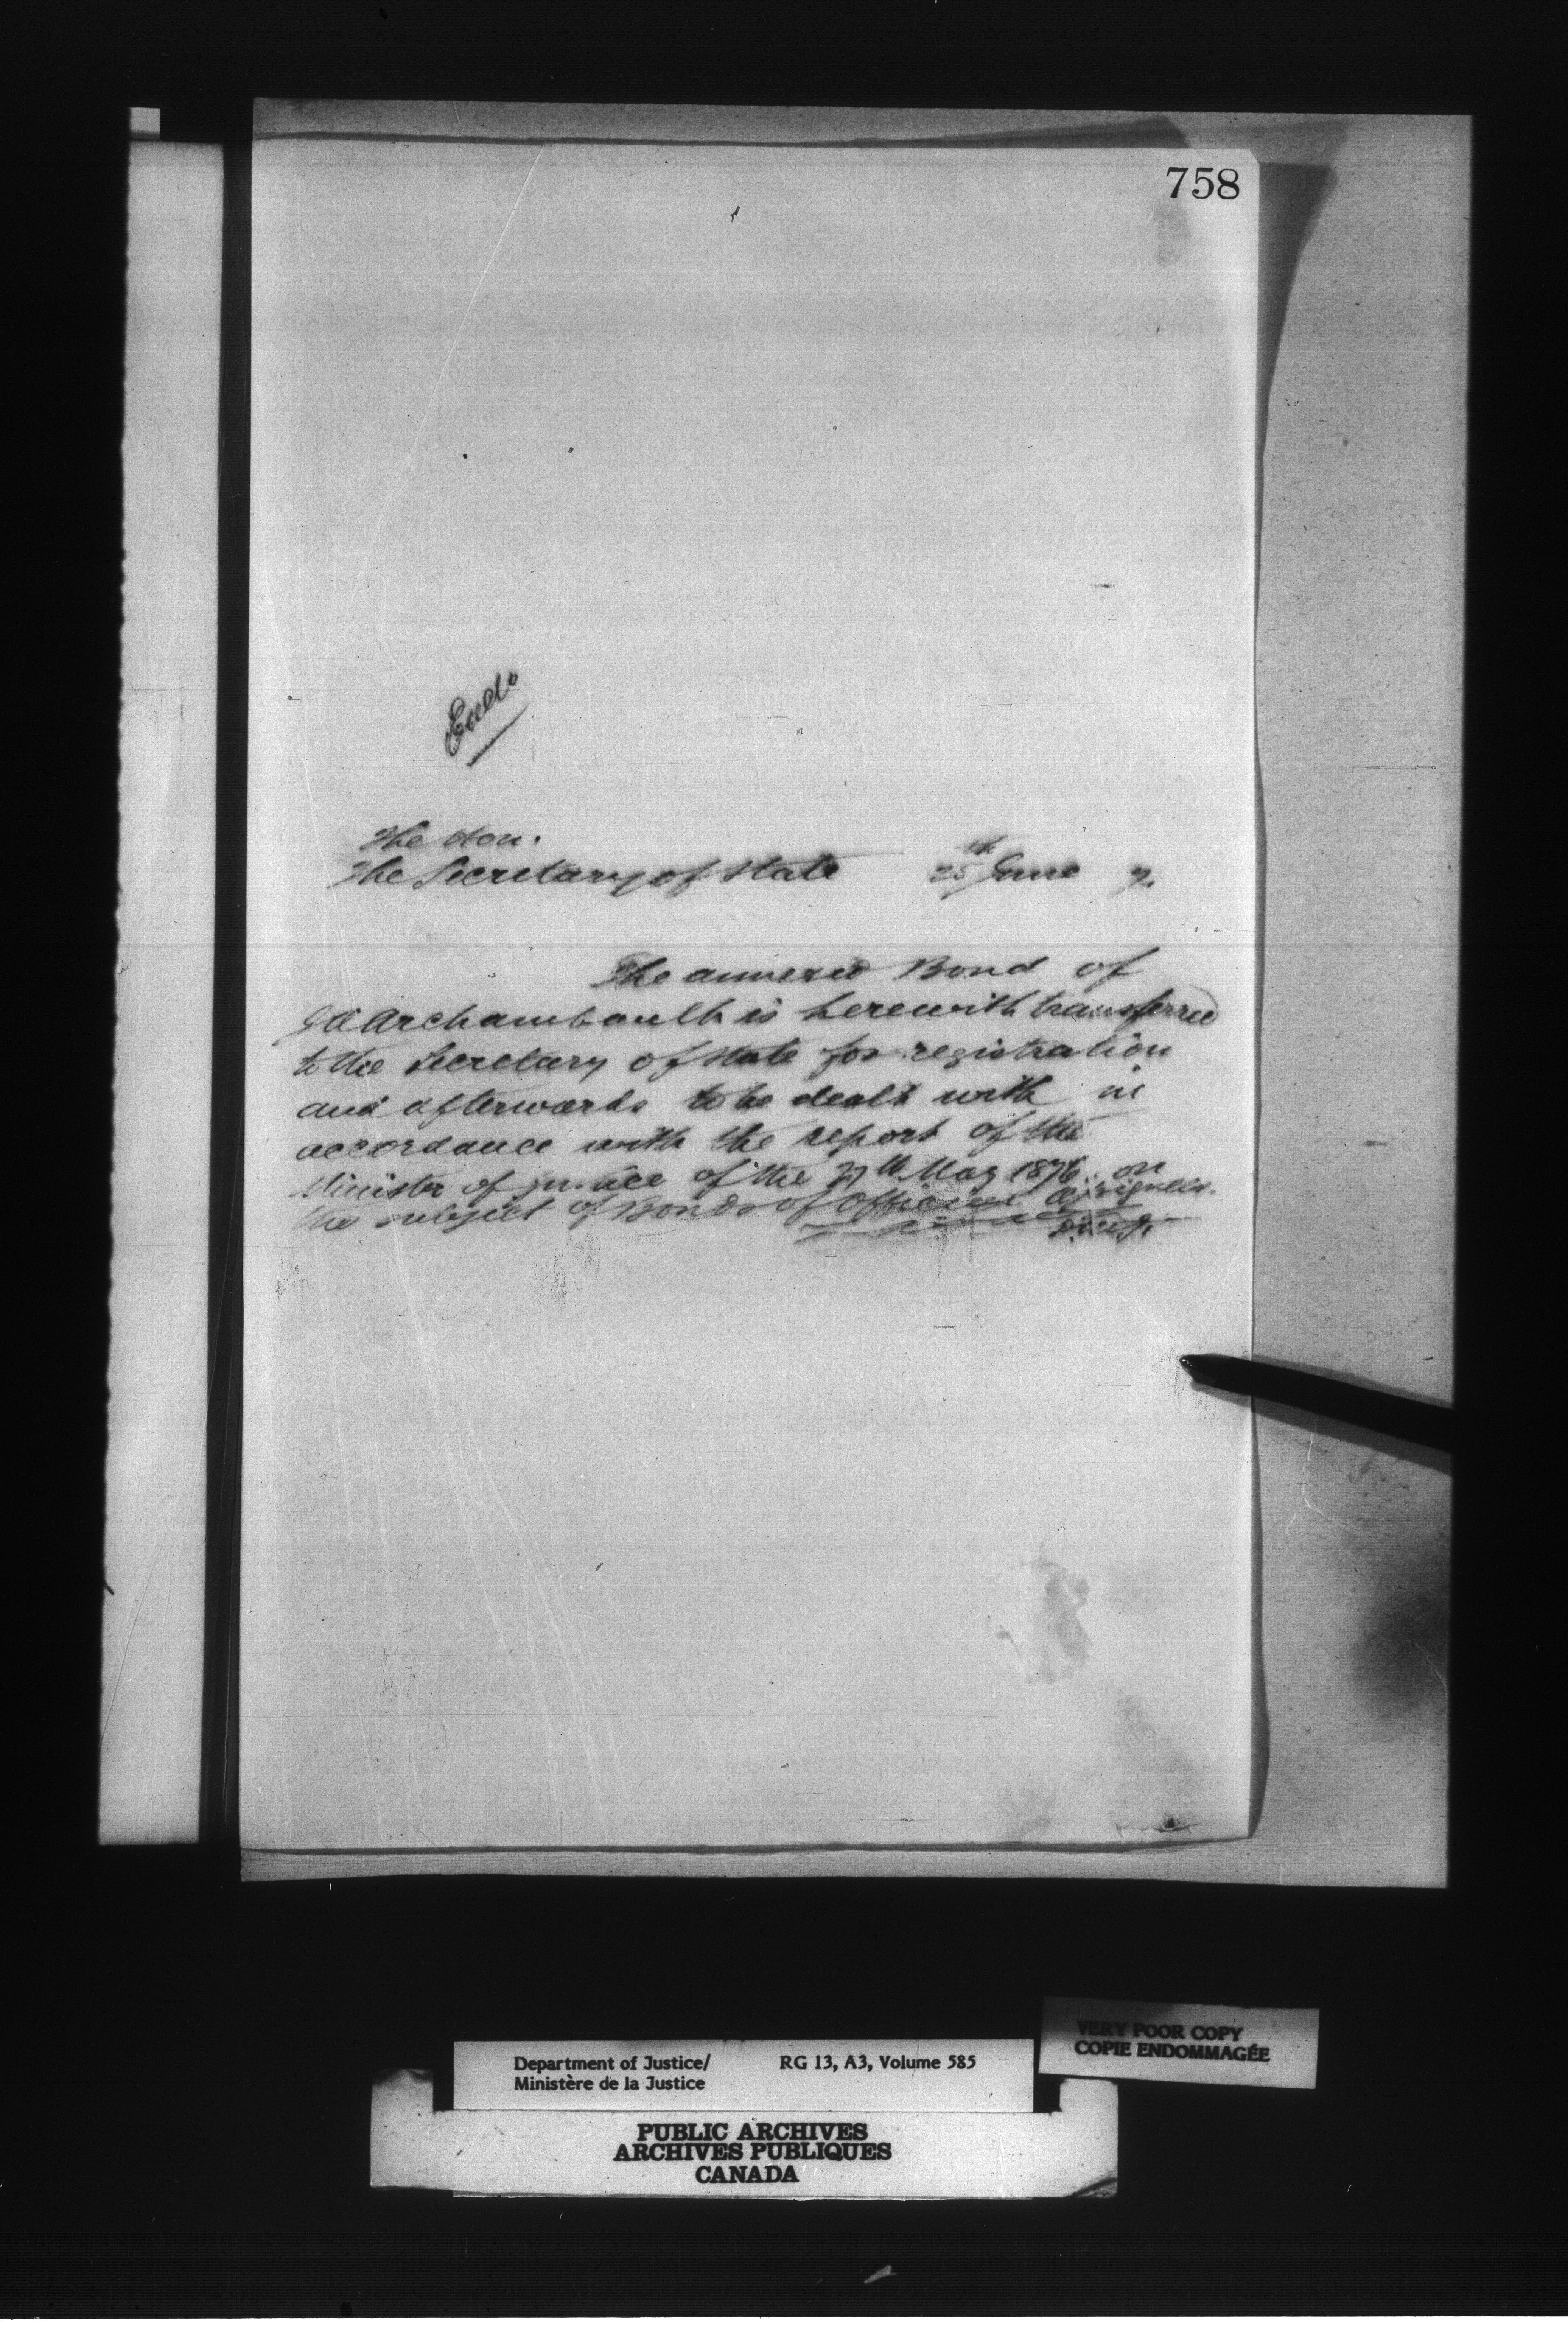 758
Enclo
The Hon.
The Secretary of State 25th June 7.
The annexed Bond of
J A Archambault is herewith transferred
to the Secretary of State for registration
and afterwards to be dealt with in
accordance with the report of the
Minister of Justice of the 27th May 1876 on
the subject of Bonds of Official Assignees.
VERY POOR COPY
COPIE ENDOMMAGÉE
Department of Justice/ RG 13, A3, Volume 585
Ministère de la Justice
PUBLIC ARCHIVES
ARCHIVES PUBLIQUES
CANADA